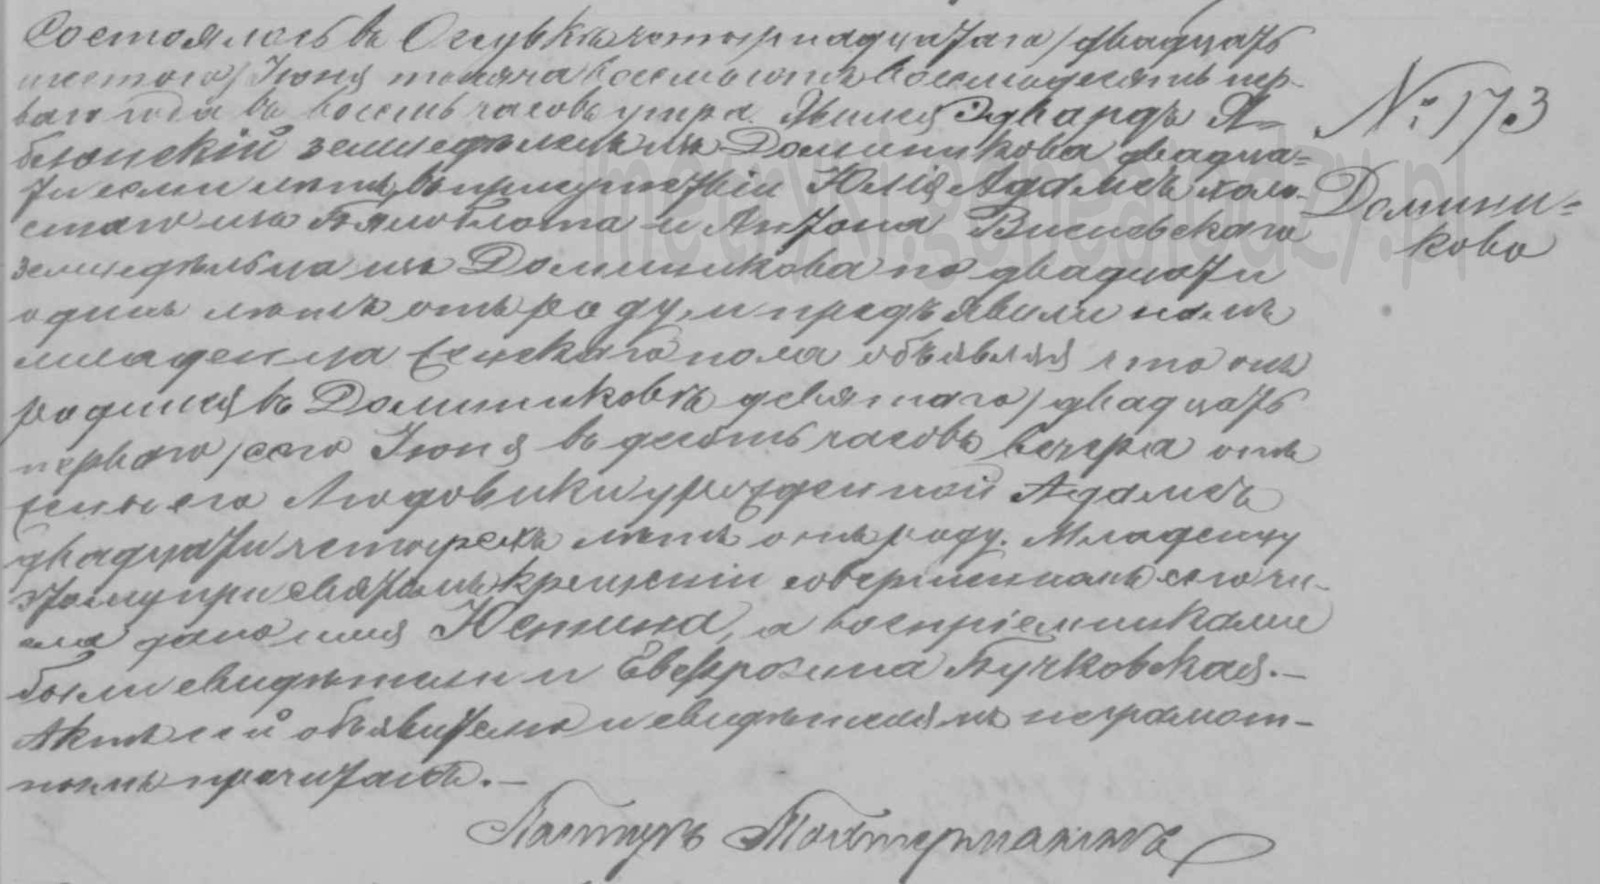 Состоялось въ Ослувкѣ четырнадцатаго / двадцать
шестого / Іюня тысяча восемьсотъ восемьдесятъ пер-
ваго года въ восемь часовъ утра. Явился Эдвардъ Я-
блонскій земледѣлецъ изъ Доминикова двадца-
ти семи лѣтъ, въ присутствіи Юлія Адамсъ коло-
ниста изъ и Антона Висневскаго
земледѣльца изъ Доминикова по двадцати
одинъ лѣтъ отъ роду, и предъявили намъ
младенца женскаго пола объявляя что онъ
родился въ Доминиковѣ девятаго / двадцать
перваго / сего Іюня въ десять часовъ вечера отъ
жены его Людовики урожденной Адамсъ
двадцати четырехъ лѣтъ отъ роду. Младенцу
этому при святомъ крещеніи совершенномъ сего чи-
сла дано имя а воспріемниками
были свидѣтели и Евфрозина Бучковская.—
Актъ сей объявителю и свидѣтелямъ неграмот-
нымъ прочитанъ.—
Пасторъ
№ 173
Домини-
ково
metryki.genealodzy.pl